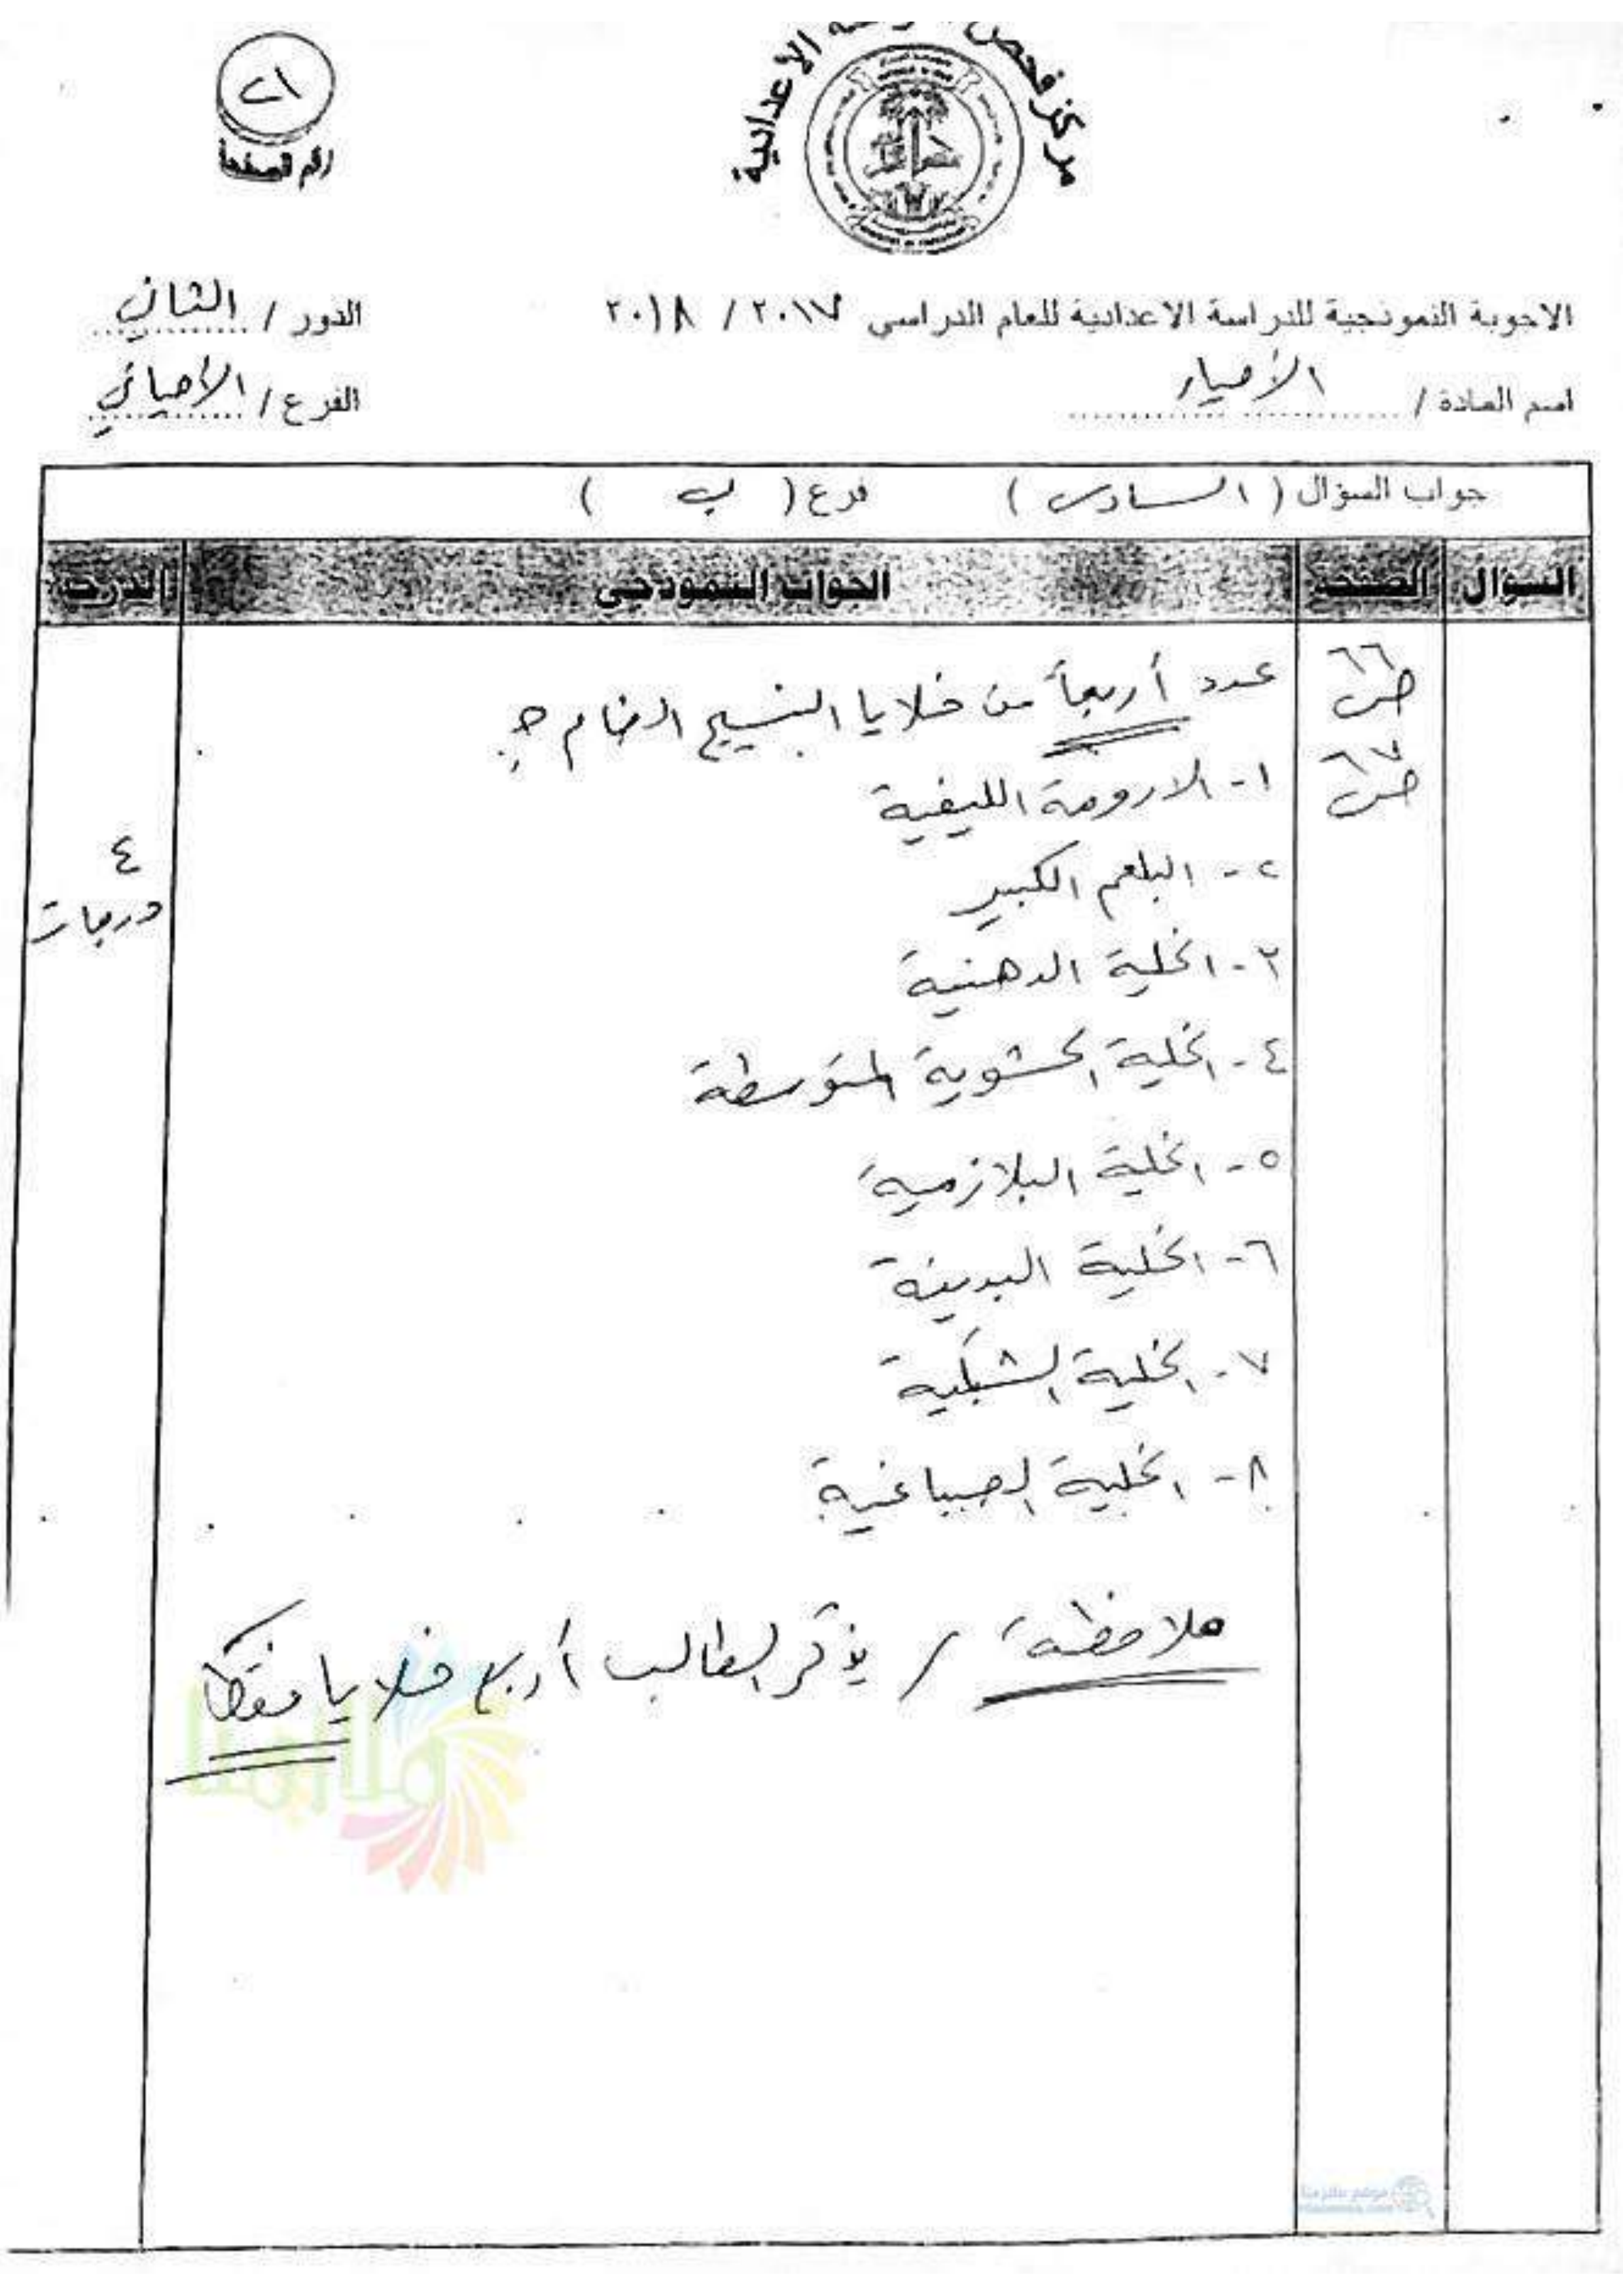 ٢١
رقم الصفحة
مركز فحص الدراسة الاعدادية
الاجوبة النموذجية للدراسة الاعدادية للعام الدراسي ٢٠١٧ / ٢٠١٨
الدور / الثاني
اسم المادة / الأحياء
الفرع / الإحيائي
جواب السؤال ( السادس ) فرع ( ب )
السؤال الصفحة الجواب النموذجي الدرجة
ص ٦٦ عدد أربعاً من خلايا النسيج الضام ج:
ص ٦٧ ١- الارومة الليفية
٢- البلعم الكبير
٤ درجات
٣- الخلية الدهنية
٤- الخلية الحشوية المتوسطة
٥- الخلية البلازمية
٦- الخلية البدينة
٧- الخلية الشبكية
٨- الخلية الصباغية
ملاحظة / يذكر الطالب أربع خلايا فقط
ملازمنا
موقع ملازمنا